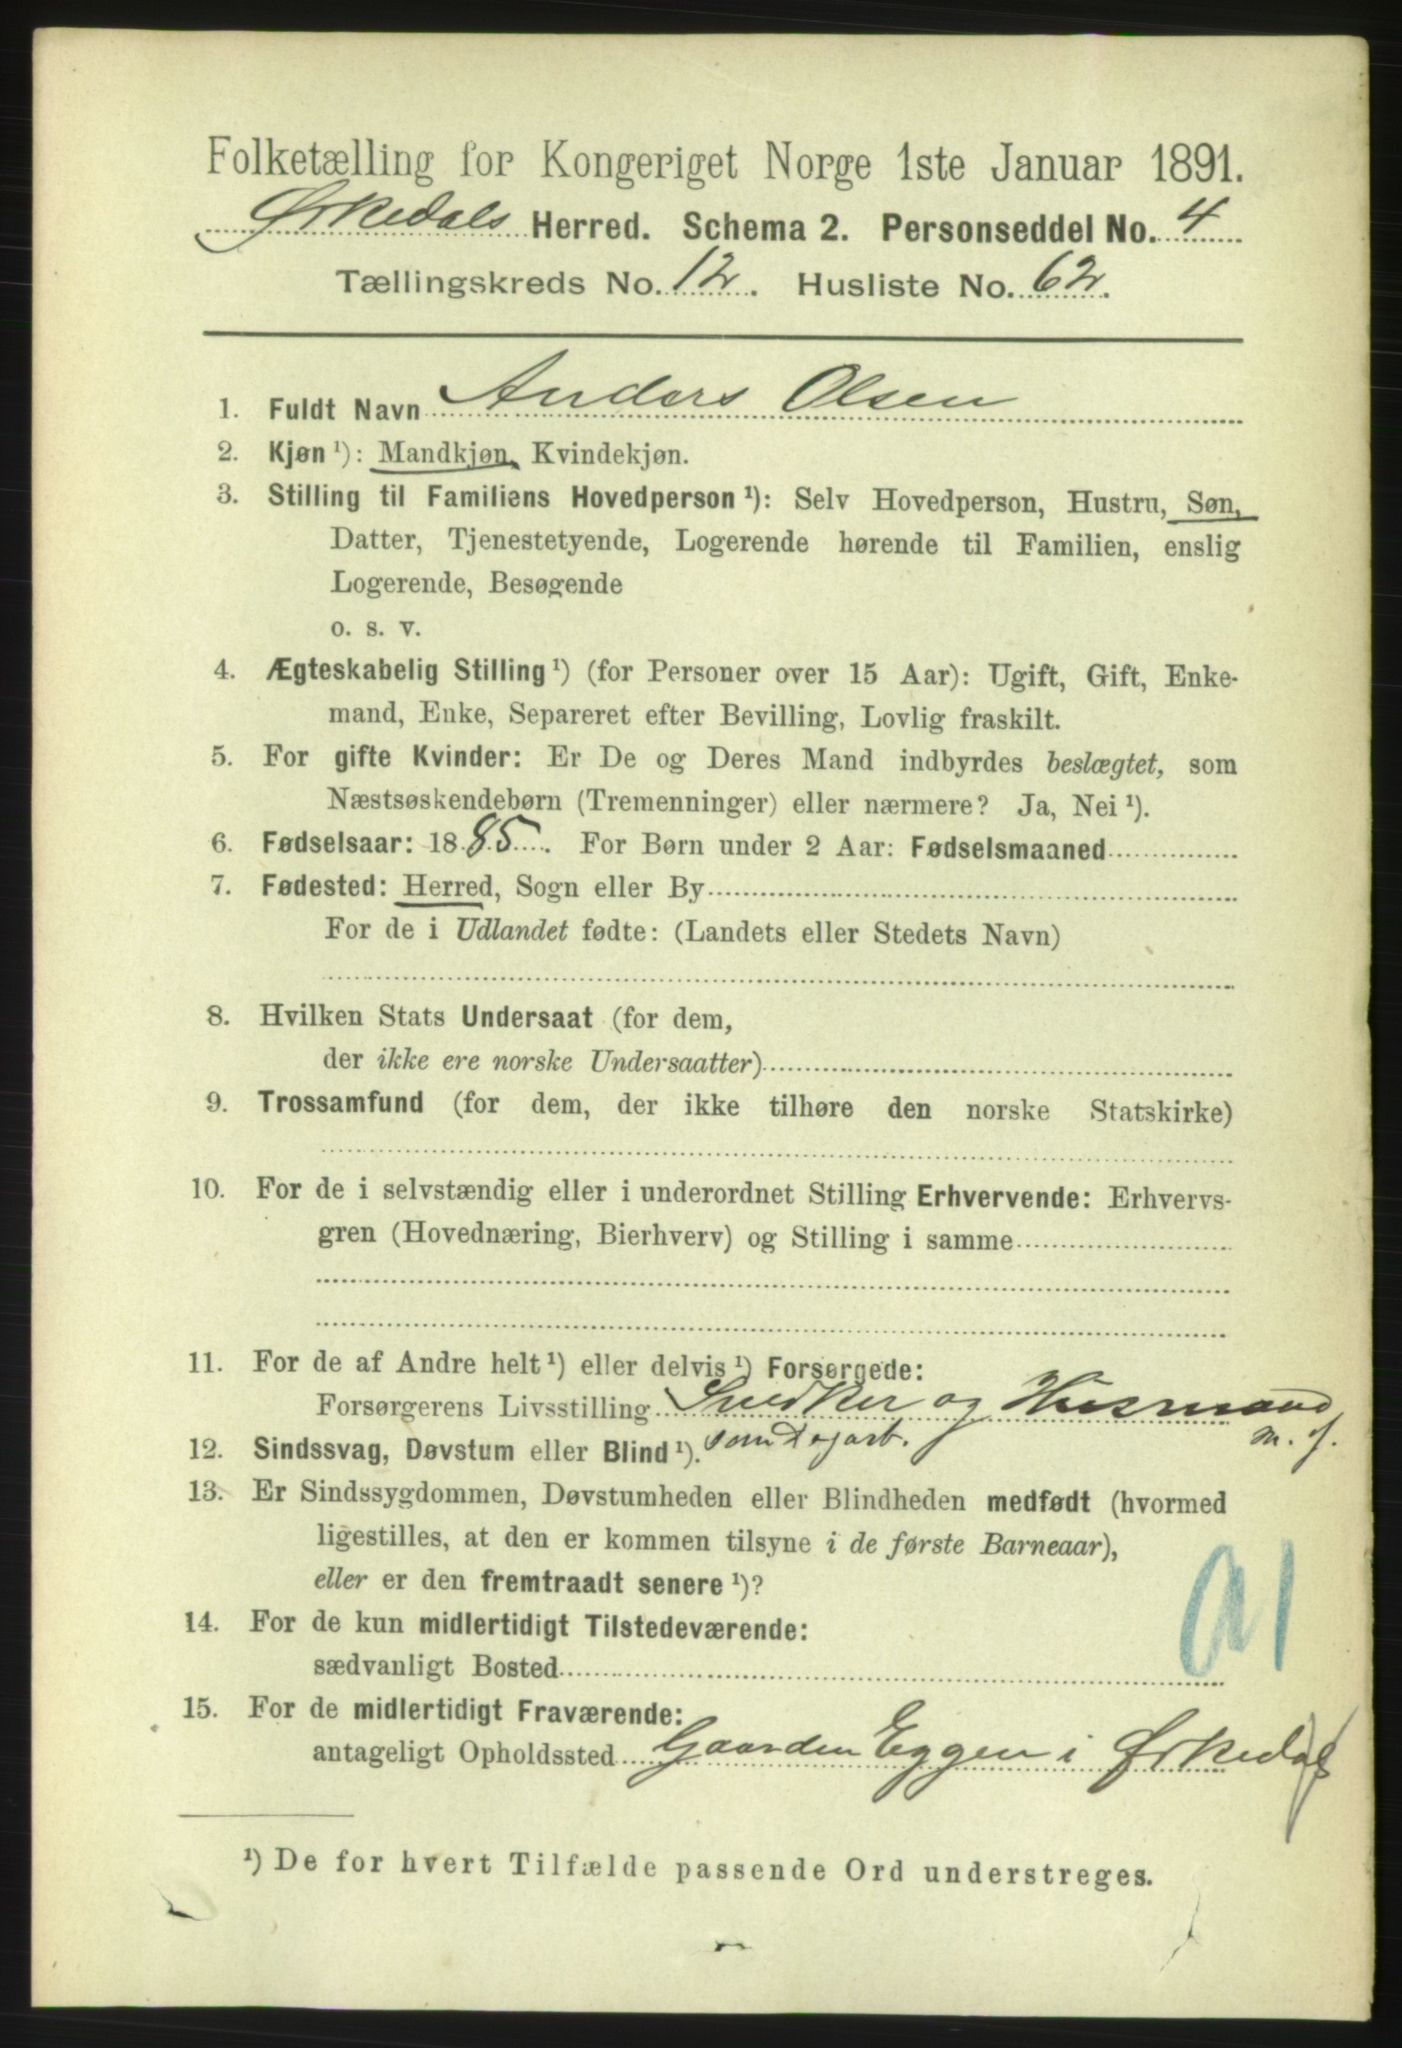 Folketælling for Kongeriget Norge 1ste Januar 1891.
Ørkedals Herred. Schema 2. Personseddel No. 4
Tællingskreds No. 12. Husliste No. 62.
1. Fuldt Navn Anders Olsen
2. Kjøn ¹): Mandkjøn, Kvindekjøn.
3. Stilling til Familiens Hovedperson ¹): Selv Hovedperson, Hustru, Søn,
Datter, Tjenestetyende, Logerende hørende til Familien, enslig
Logerende, Besøgende
o. s. v.
4. Ægteskabelig Stilling ¹) (for Personer over 15 Aar): Ugift, Gift, Enke-
mand, Enke, Separeret efter Bevilling, Lovlig fraskilt.
5. For gifte Kvinder: Er De og Deres Mand indbyrdes beslægtet, som
Næstsøskendebørn (Tremenninger) eller nærmere? Ja, Nei ¹).
6. Fødselsaar: 1885. For Børn under 2 Aar: Fødselsmaaned
7. Fødested: Herred, Sogn eller By
For de i Udlandet fødte: (Landets eller Stedets Navn)
8. Hvilken Stats Undersaat (for dem,
der ikke ere norske Undersaatter)
9. Trossamfund (for dem, der ikke tilhøre den norske Statskirke)
10. For de i selvstændig eller i underordnet Stilling Erhvervende: Erhvervs-
gren (Hovednæring, Bierhverv) og Stilling i samme
11. For de af Andre helt ¹) eller delvis ¹) Forsørgede:
Forsørgerens Livsstilling Snedker og Husmand
12. Sindssvag, Døvstum eller Blind ¹). som Dagarb. m. J.
13. Er Sindssygdommen, Døvstumheden eller Blindheden medfødt (hvormed
ligestilles, at den er kommen tilsyne i de første Barneaar),
eller er den fremtraadt senere ¹)?
14. For de kun midlertidigt Tilstedeværende:
sædvanligt Bosted
15. For de midlertidigt Fraværende:
antageligt Opholdssted Gaarden Eggen i Ørkedal
¹) De for hvert Tilfælde passende Ord understreges.